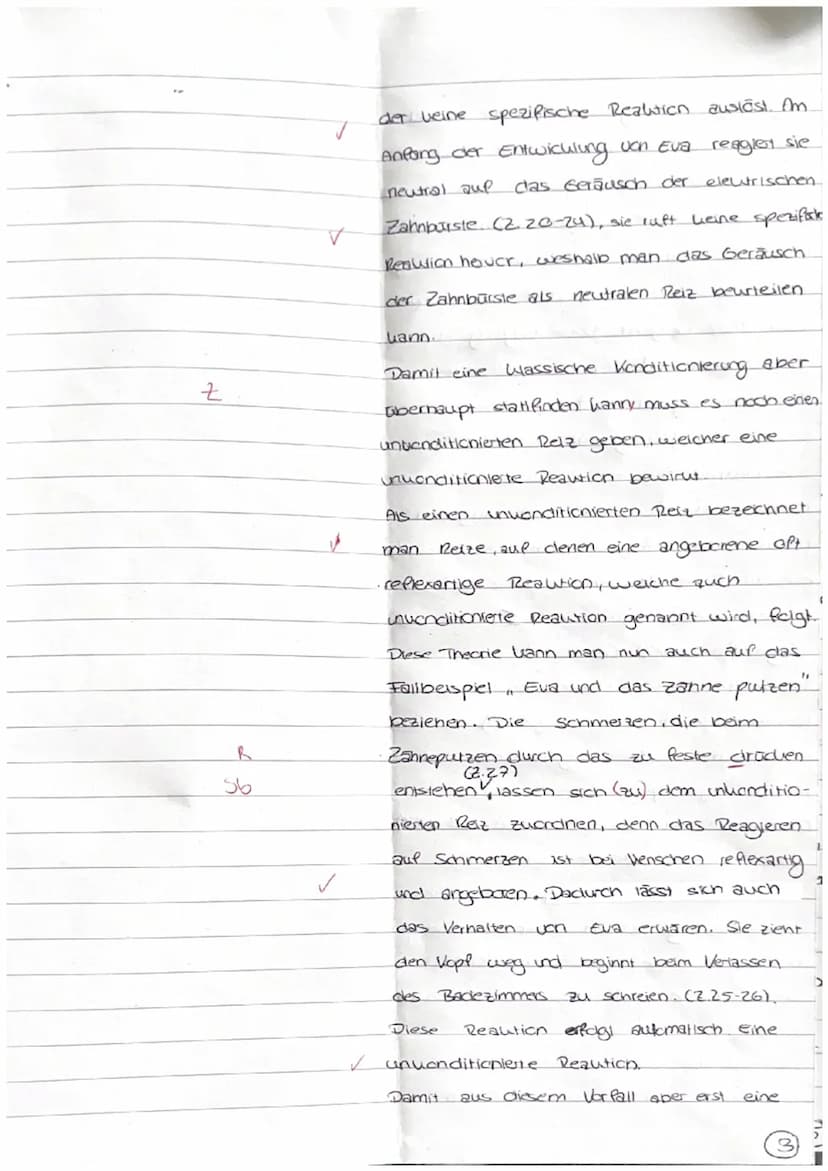 der keine spezifische Reaktion auslöst. Am
Anfang der Entwicklung von Eva reagiert sie
neutral auf das Geräusch der elektrischen
Zahnbürste. (Z. 20-24), sie ruft keine spezifisk
Reaktion hevor, weshalb man das Geräusch
der Zahnbürste als neutralen Reiz beurteilen
kann.
Damit eine klassische Konditionierung aber
Z überhaupt stattfinden kann, muss es noch einen
unkonditionierten Reiz geben, welcher eine
unkonditionierte Reaktion bewirkt.
Als einen unkonditionierten Reiz bezeichnet
man Reize, auf denen eine angeborene oft
reflexartige Reaktion, welche auch
unkonditionierte Reaktion genannt wird, folgt.
Diese Theorie kann man nun auch auf das
Fallbeispiel „Eva und das Zähne putzen"
beziehen. Die Schmerzen, die beim
R Zähneputzen durch das zu feste drücken
(Z.27)
Sb entstehen, lassen sich (zu) dem unkonditio-
nierten Reiz zuordnen, denn das Reagieren
auf Schmerzen ist bei Menschen reflexartig
und angeboren. Dadurch lässt sich auch
das Verhalten von Eva erklären. Sie zieht
den Kopf weg und beginnt beim Verlassen
des Badezimmers zu schreien. (Z.25-26).
Diese Reaktion erfolgt automatisch eine
unkonditionierte Reaktion.
Damit aus diesem Vorfall aber erst eine
3